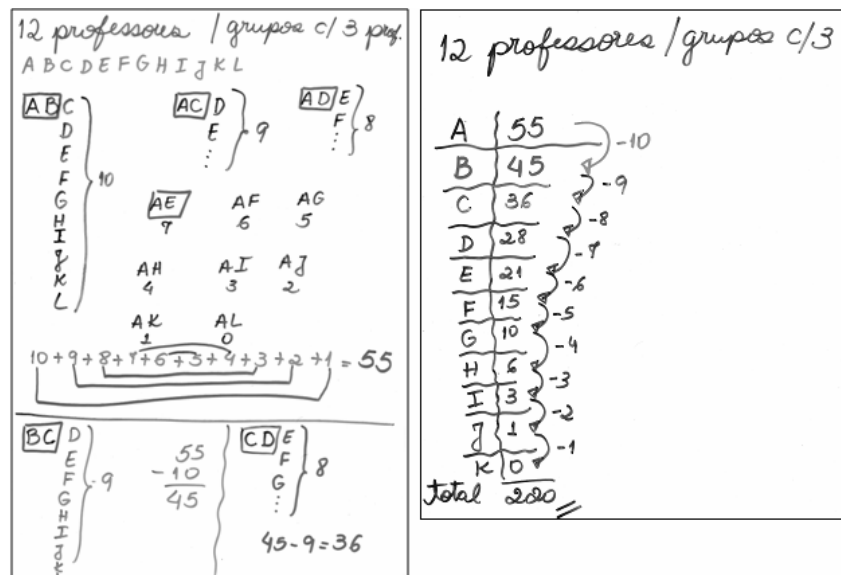 12 professores / grupos c/ 3 prof.
A B C D E F G H I J K L
AB C
D
E
F
G
H
I
J
K
L
10
AC D
E
⋮
9
AD E
F
⋮
8
AE
7
AF
6
AG
5
AH
4
AI
3
AJ
2
AK
1
AL
0
10+9+8+7+6+5+4+3+2+1 = 55
BC D
E
F
G
H
I
J
K
9
55
-10
45
CD E
F
G
⋮
8
45-9=36
12 professores / grupos c/3
A 55 -10
B 45 -9
C 36 -8
D 28 -7
E 21 -6
F 15 -5
G 10 -4
H 6 -3
I 3 -2
J 1 -1
K 0
total 220